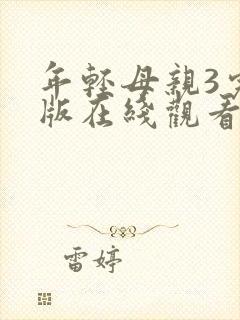 年輕母親3
版在綫觀看
雷婷